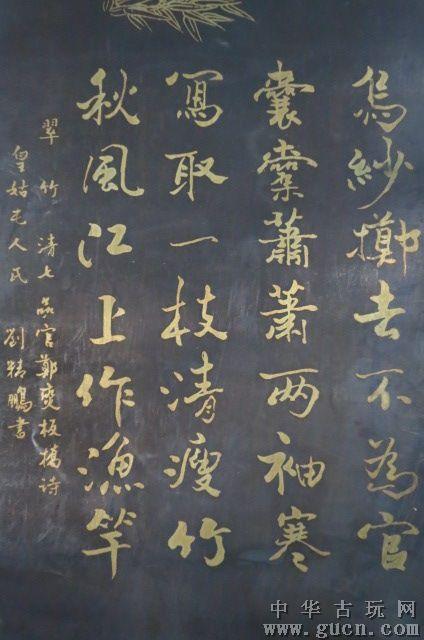 烏紗擲去不為官
囊橐蕭蕭两袖寒
寫取一枝清瘦竹
秋風江上作漁竿
翠竹 清七品官鄭燮板橋詩
皇姑屯人氏 劉精鵬書
中华古玩网
www.gucn.com